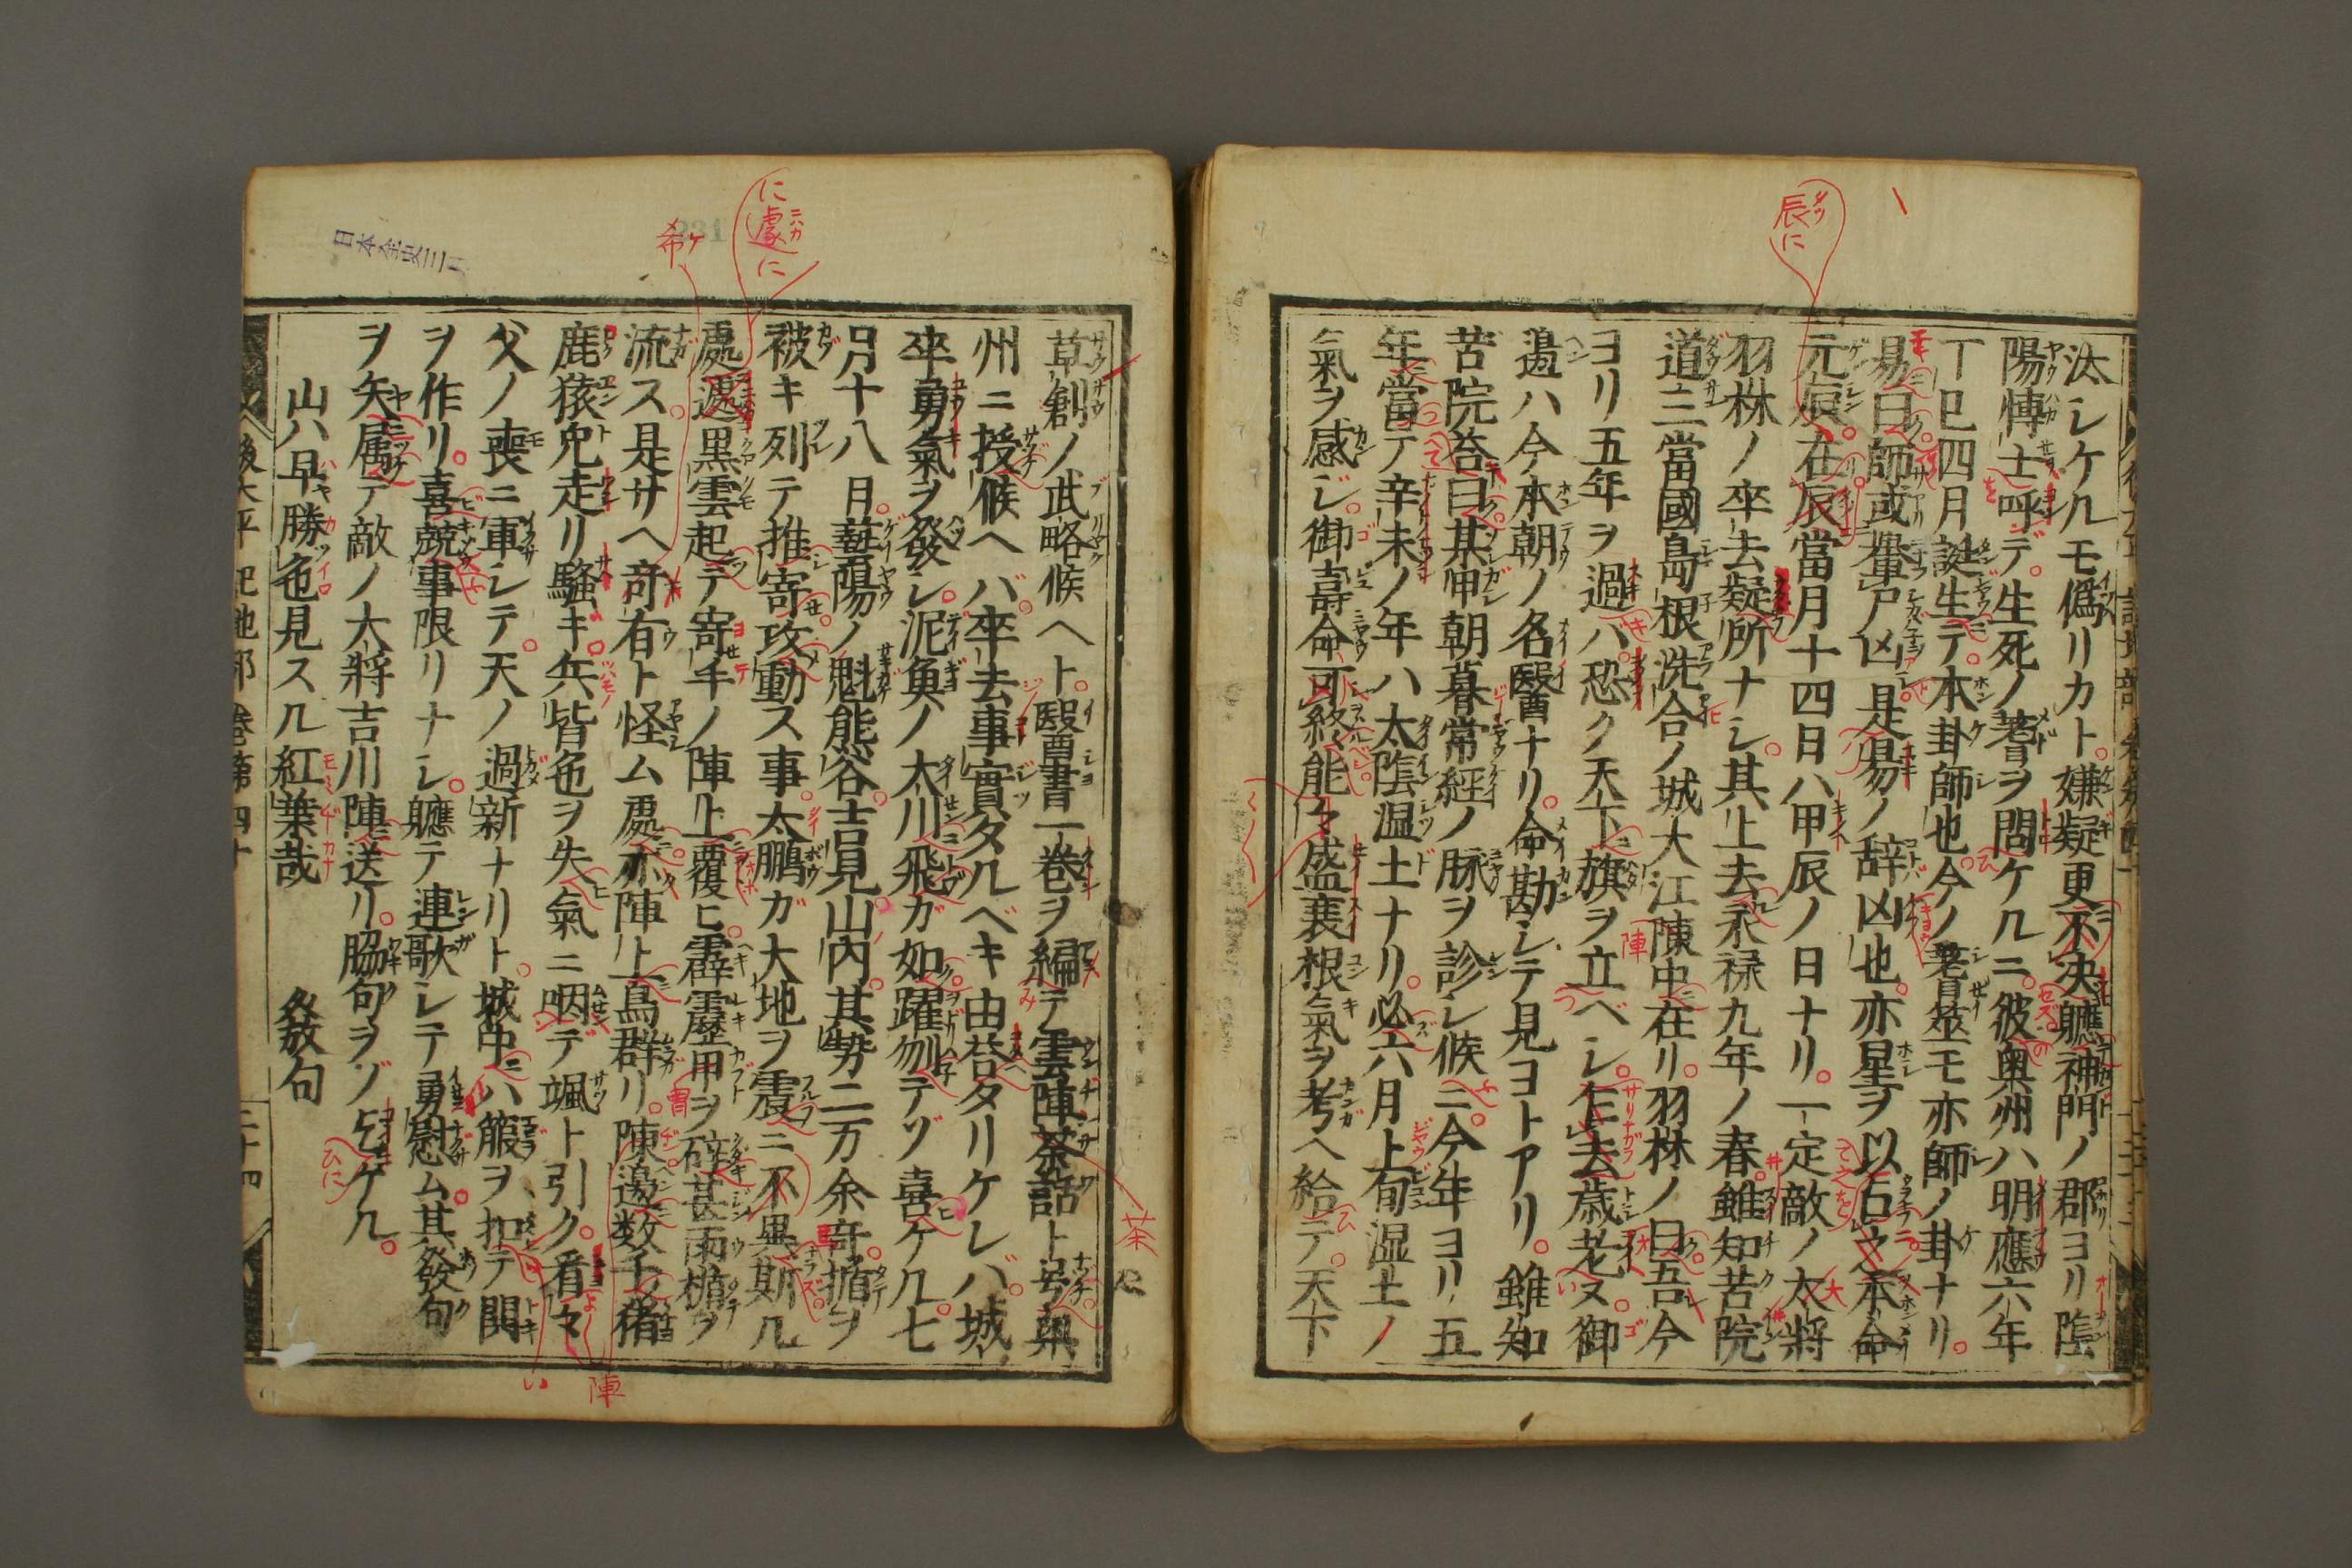 汰シケルモ偽リカト。嫌疑更不決。軈神門ノ郡ヨリ陰
陽博士呼デ。生死ノ蓍ヲ問ケルニ。彼奥州ハ明應六年
丁巳四月誕生テ。本卦師也。今ノ蓍筮モ亦師ノ卦ナリ。
易曰師或輿尸凶。是易ノ辞凶也。亦星ヲ以占之本命
元辰在辰當月十四日ハ甲辰ノ日ナリ。一定敵ノ大將
羽林ノ卒去疑所ナシ。其上去永禄九年ノ春。雖知苦院
道三當國島根洗合ノ城大江陳中在リ。羽林ノ曰吾今
ヨリ五年ヲ過バ。恐ク天下旗ヲ立ベシ。乍去歳老ヌ。御
邉ハ今本朝ノ名醫ナリ。命勘シテ見ヨトアリ。雖知
苦院荅曰。某甲朝暮常經ノ脉ヲ診シ候ニ。今年ヨリ五
年當テ辛未ノ年ハ太陰温土ナリ。必六月上旬湿土ノ
氣ヲ感ジ。御壽命可終。能々盛衰根氣ヲ考ヘ給テ。天下
草創ノ武略候ヘト。醫書一巻ヲ編テ雲陣茶話ト号。藝
州ニ授候ヘバ。卒去事實タルベキ由荅タリケレバ。城
卒勇氣ヲ發シ。泥魚ノ大川飛ガ如。躍刎テゾ喜ケル。七
月十八日。藝陽ノ魁熊谷。吉見。山内。其勢二万余竒。楯ヲ
被キ列テ推寄。攻動ス事。太鵬ガ大地ヲ震ニ不異。斯ル
處遽黒雲起テ寄手ノ陣上覆ヒ。霹靂甲ヲ碎。甚雨楯ヲ
流ス。是サヘ竒有ト怪ム處亦陣上鳥群リ。陳邉数千ノ猪
鹿猿兕走リ騒キ。兵皆色ヲ失。氣ニ咽デ颯ト引ク。看々
父ノ喪ニ軍シテ。天ノ過新ナリト。城中ニハ箙ヲ扣テ鬨
ヲ作リ。喜競事限リナシ。軈テ連歌シテ勇慰ム。其發句
ヲ矢属テ敵ノ大將吉川陣送リ。脇句ヲゾ乞ケル。
山ハ早勝色見スル紅葉哉
發句
後太平記地部 巻第四十
二十四
辰に
に處に
希ケ
茶
陣
陣
冑
日本全史三月